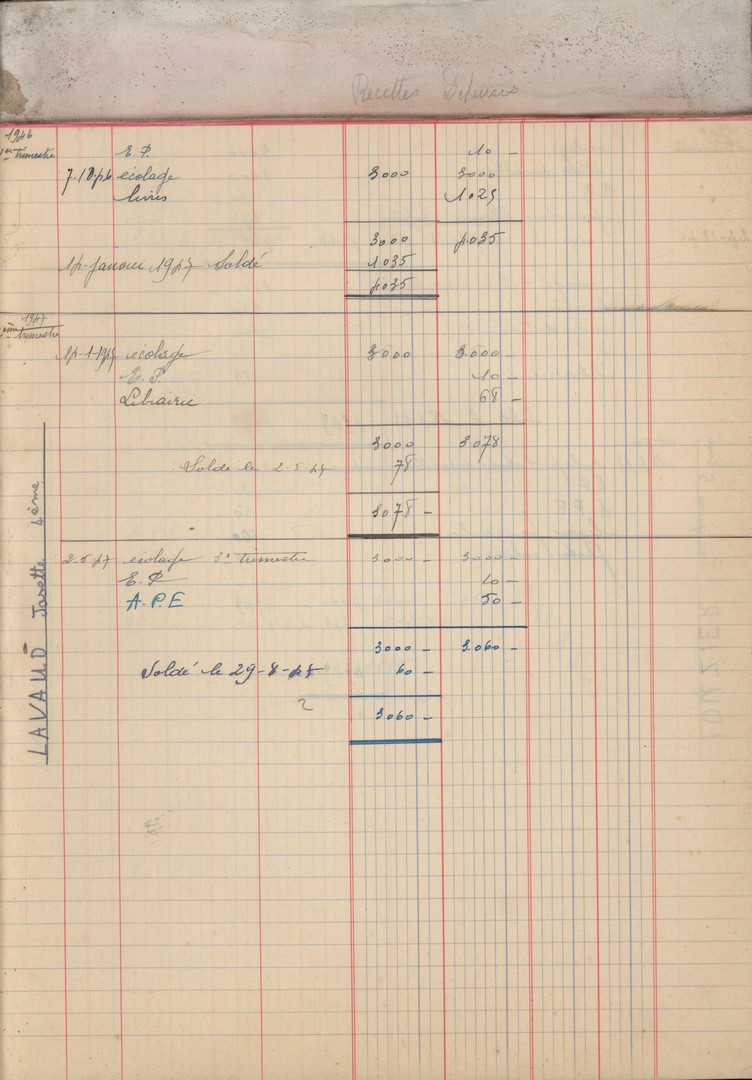 Recettes Dépenses
1946
1er trimestre
E.P. 10 -
écolage 3000 3000
livres 1025
3000 4035
14 Janvier 1947 Soldé 1035
4035
1947
2ème trimestre
14-1-1947 écolage 3000 3.000
E.P. 10 -
Librairie 68 -
3000 3078
Soldé le 2 5 47 78
3078 -
2.5.47 écolage 3e trimestre 3000 - 3000 -
E.P. 10 -
A.P.E 50 -
3000 - 3.060 -
Soldé le 29-8-47 60 -
3060 -
LAVAUD Josette 4ème